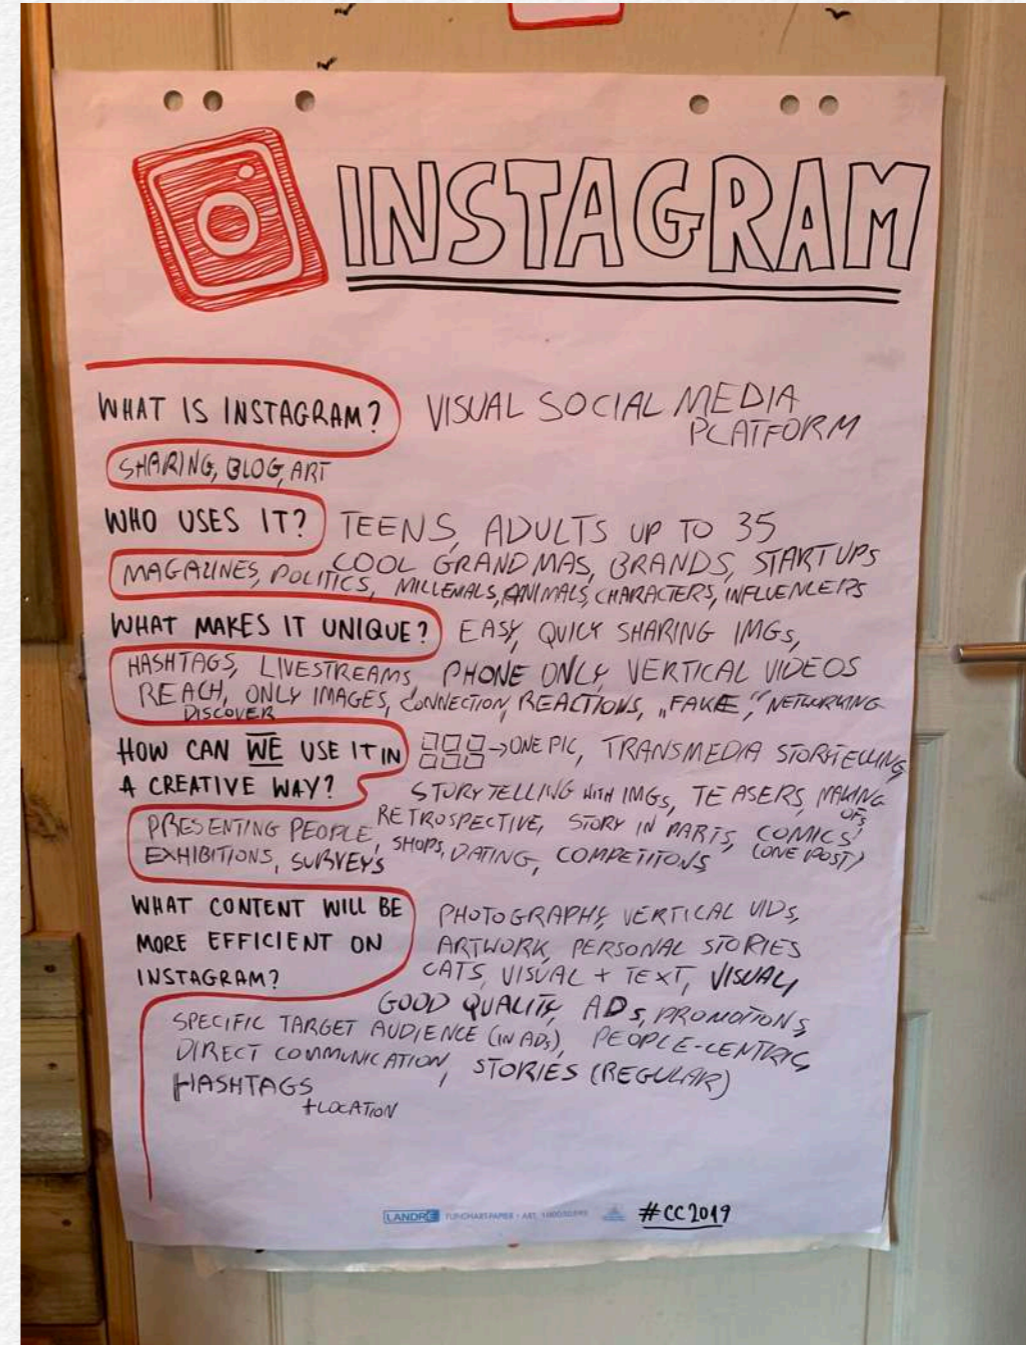 INSTAGRAM
WHAT IS INSTAGRAM? VISUAL SOCIAL MEDIA
PLATFORM
SHARING, BLOG, ART
WHO USES IT? TEENS, ADULTS UP TO 35
COOL GRANDMAS, BRANDS, STARTUPS
MAGAZINES, POLITICS, MILLENIALS, ANIMALS, CHARACTERS, INFLUENCERS
WHAT MAKES IT UNIQUE? EASY, QUICK SHARING IMGs,
HASHTAGS, LIVESTREAMS PHONE ONLY, VERTICAL VIDEOS
REACH, ONLY IMAGES, CONNECTION, REACTIONS, „FAKE“, NETWORKING
DISCOVER
HOW CAN WE USE IT IN → ONE PIC, TRANSMEDIA STORYTELLING,
A CREATIVE WAY? STORYTELLING WITH IMGs, TEASERS, MAKING
OFs
PRESENTING PEOPLE, RETROSPECTIVE, STORY IN PARTS, COMICS
EXHIBITIONS, SURVEYS SHOPS, DATING, COMPETITONS (ONE POST)
WHAT CONTENT WILL BE PHOTOGRAPHY, VERTICAL VIDS,
MORE EFFICIENT ON ARTWORK, PERSONAL STORIES
INSTAGRAM? CATS, VISUAL + TEXT, VISUAL,
GOOD QUALITY, ADs, PROMOTIONS,
SPECIFIC TARGET AUDIENCE (IN ADs), PEOPLE-CENTRIC,
DIRECT COMMUNICATION, STORIES (REGULAR)
HASHTAGS
+LOCATION
LANDRÉ
#CC2019